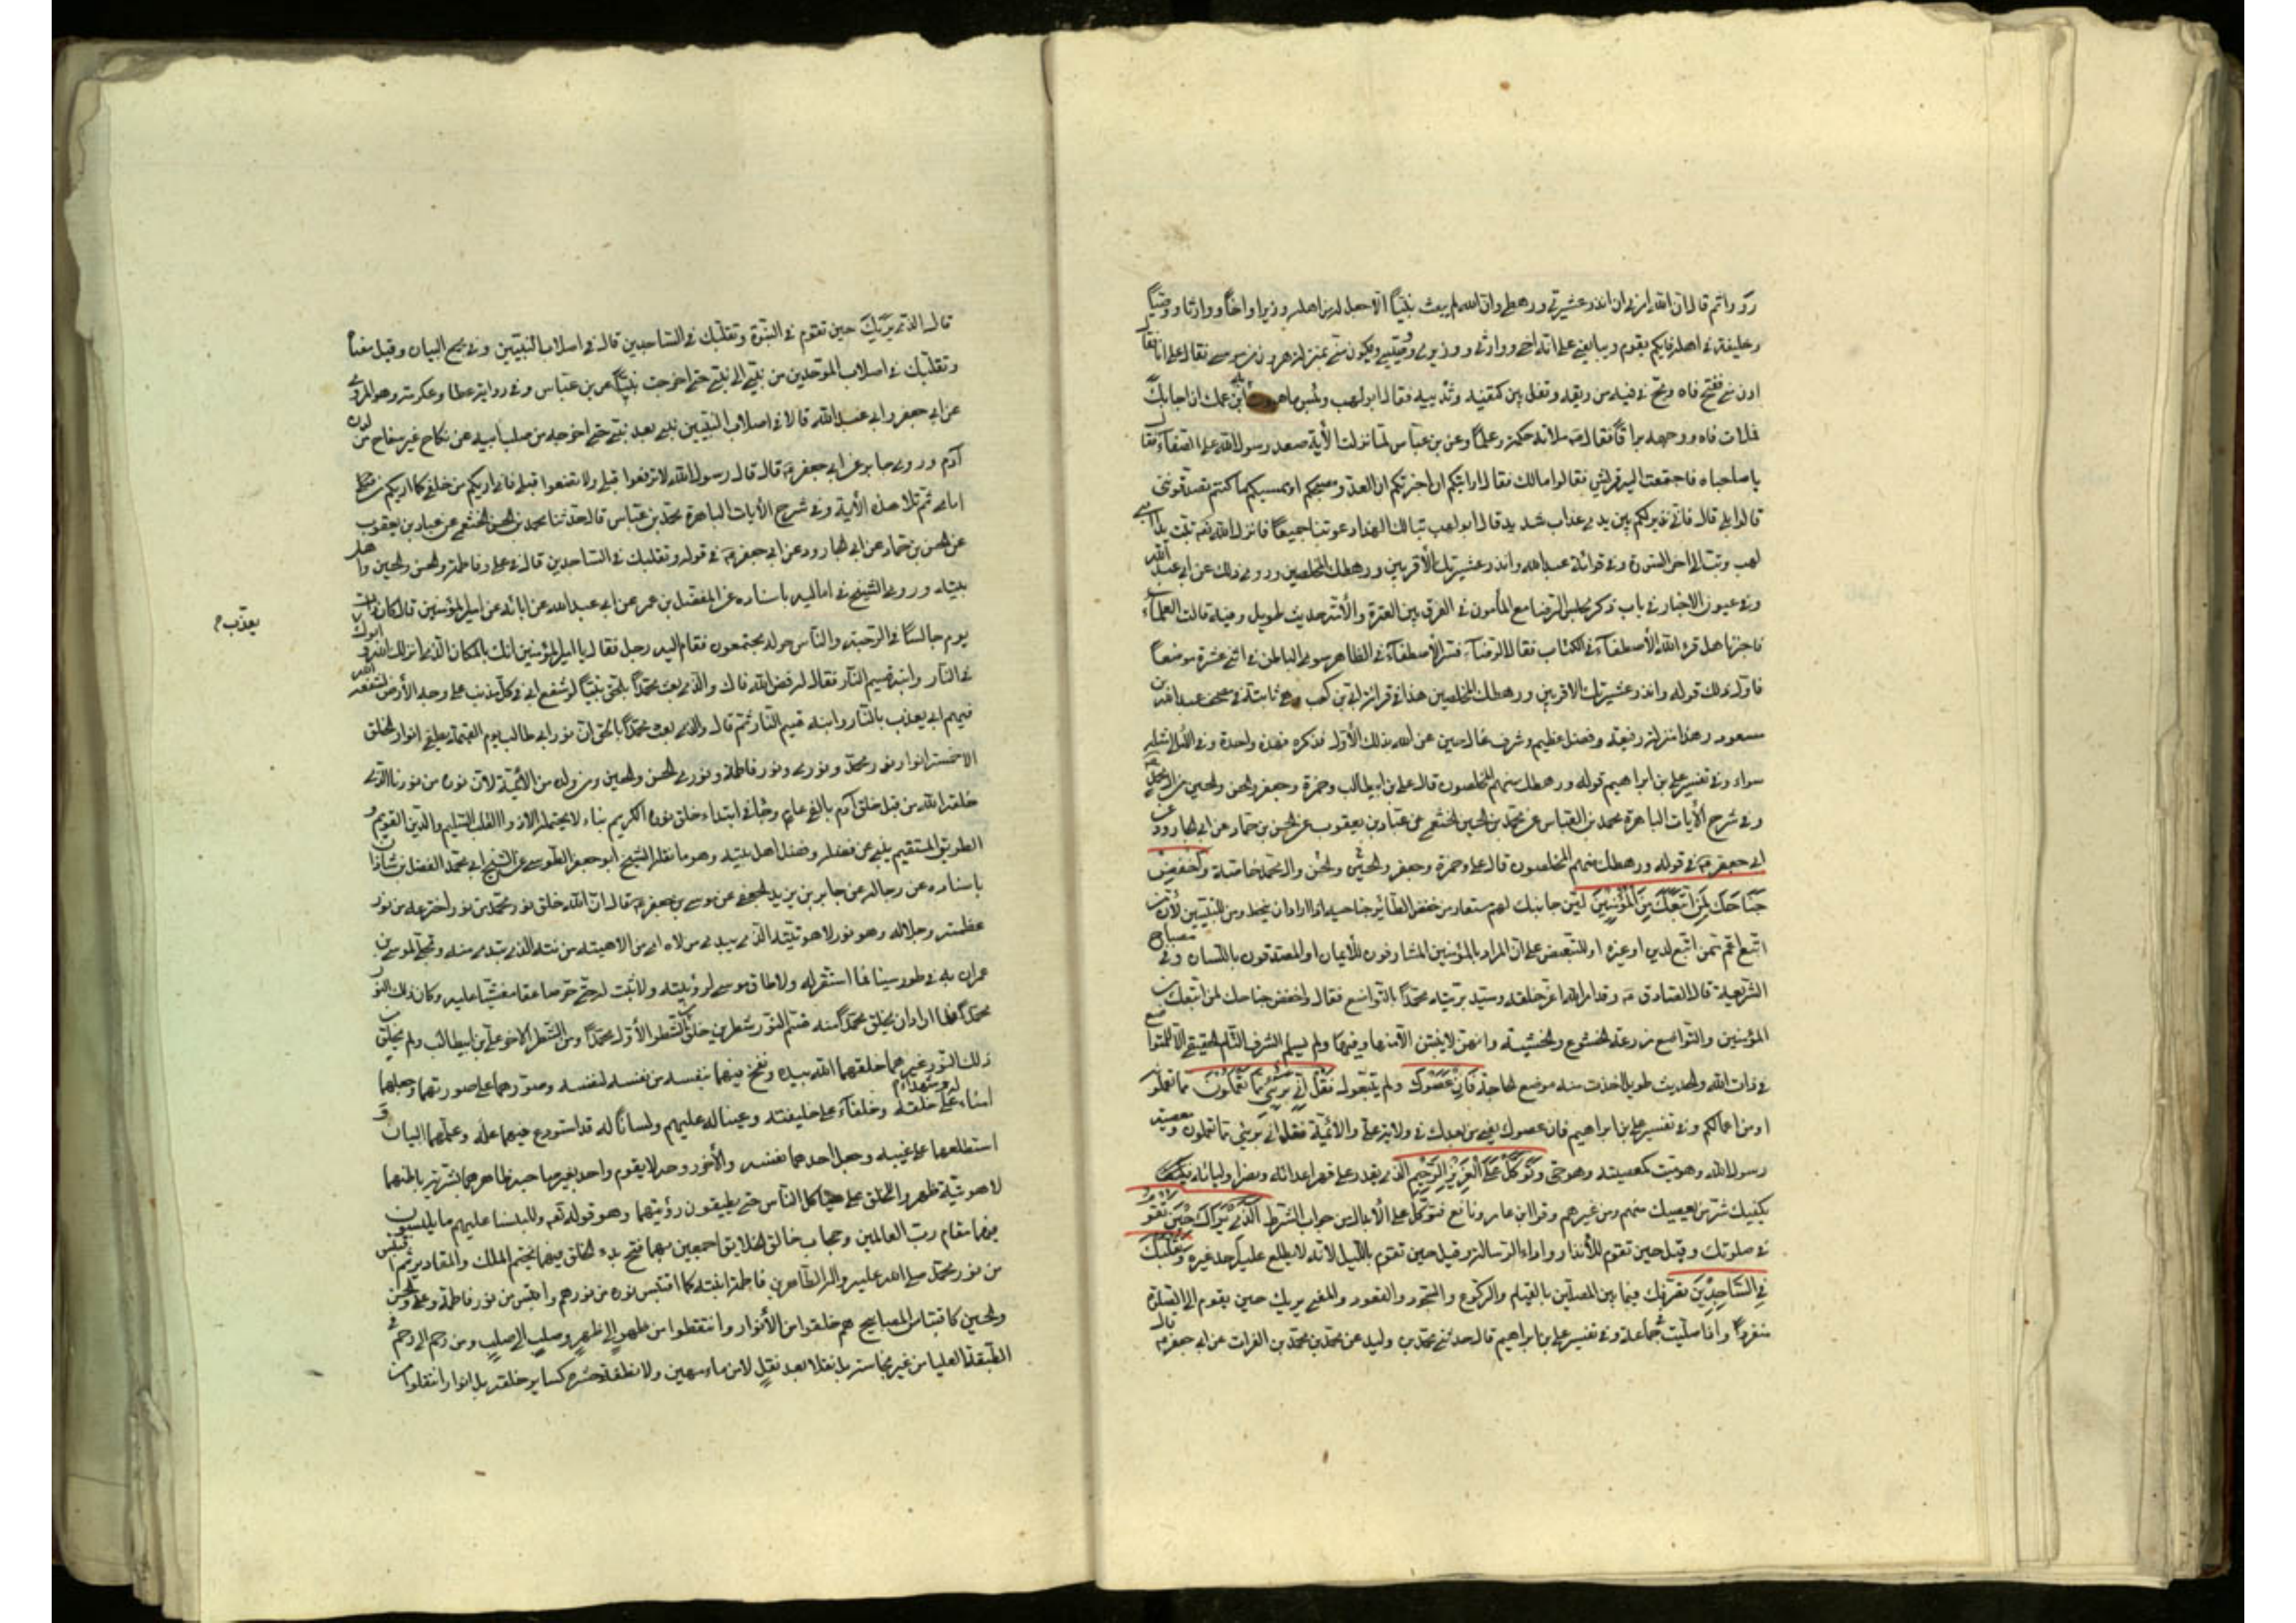 رووا ثم قال ان الله امرني ان انذر عشيرتي ورهطي وان الله لم يبعث نبيّاً الا جعل له من اهله وزيرا واخاً ووارثا ووصيّاً
وخليفة في اهله فايكم يقوم ويبايعني على انه اخي ووارثي ووزيري ووصيي ويكون مني بمنزلة هرون من موسى فقال علي انا فقال
ادن مني ففتح فاه ومج في فيه من ريقه وتفل بين كتفيه وثدييه فقال ابو لهب ولبئس ما حبوت به ابن عمك ان اجابك
فملات فاه ووجهه بزاقاً فقال ص ملاته حكمة وعلماً وعن بن عباس لما نزلت الأية صعد رسول الله على الصفا فقال
يا صباحاه فاجتمعت اليه قريش فقالوا مالك فقال ارايتكم ان اخبرتكم ان العدو مصبحكم او ممسيكم ما كنتم تصدقونني
قالوا بلى قال فاني نذير لكم بين يدي عذاب شديد قال ابو لهب تبا لك الهذا دعوتنا جميعاً فانزل الله تعه تبت يدا ابي
لهب وتب الى اخر السورة وفي قرائة عبد الله وانذر عشيرتك الأقربين ورهطك المخلصين وروى ذلك عن ابي عبد الله
وفي عيون الاخبار في باب ذكر مجلس الرضا مع المأمون في الفرق بين العترة والأمة حديث طويل وفيه قالت العلماء
فاخبرنا هل فسر الله الأصطفاء في الكتاب فقال الرضا ع فسر الأصطفاء في الظاهر سوى الباطن في اثنى عشرة موضعاً
فاول ذلك قوله وانذر عشيرتك الاقربين ورهطك المخلصين هذا في قرائة ابي بن كعب وهي ثابتة في مصحف عبد الله بن
مسعود وهذا منزلة رفيعة وفضل عظيم وشرف عال حين عنى الله بذلك الأول فذكره فهذه واحدة وفي
سواء وفي تفسير علي بن ابراهيم قوله ورهطك منهم المخلصون قال علي بن ابيطالب وحمزة وجعفر والحسن والحسين من ال محمد
وفي شرح الأيات الباهرة محمد بن العباس عن محمد بن الحسين الخثعمي عن عباد بن يعقوب عن الحسن بن حماد عن ابي الجارود عن
ابي جعفر ع في قوله ورهطك منهم المخلصون قال علي وحمزة وجعفر والحسن والحسين وال محمد خاصة واخفض
جناحك لمن اتبعك من المؤمنين لين جانبك لهم مستعار من خفض الطائر جناحيه اذا اراد ان ينحط ومن للتبيين لأن من
اتبع اعم ممن اتبع لدين او غيره او للتبعيض على ان المراد بالمؤمنين المشارفون للأيمان او المصدقون باللسان وفي مصباح
الشريعة قال الصادق ع وقد امر الله اعز خلقه وسيد بريته محمداً بالتواضع فقال واخفض جناحك لمن اتبعك من
المؤمنين والتواضع مزرعة الخشوع والخشية وانهن لا ينبتن الا منها وفيها ولم يسلم الشرف التام الحقيقي الا للمتواضع
في ذات الله والحديث طويل اخذت منه موضع الحاجة فان عصوك ولم يتبعوك فقل اني برئ مما تعملون مما تعملونه
او من اعمالكم وفي تفسير علي بن ابراهيم فان عصوك يعني من بعدك في ولاية علي والأئمة فقل اني برئ مما تعملون ومعصية
رسول الله وهو ميت كمعصيته وهو حي وتوكل على العزيز الرحيم الذي يقدر على قهر اعدائه ونصر اوليائه
يكفيك شر من يعصيك منهم ومن غيرهم وقرا ابن عامر ونافع فتوكل على الأبدال من جواب الشرط الذي يراك حين تقوم
في صلوتك وقيل حين تقوم للأنذار واداء الرسالة وقيل حين تقوم بالليل لانه لا يطلع عليك احد غيره وتقلبك
في الساجدين تصرفك فيما بين المصلين بالقيام والركوع والسجود والقعود والمعنى يريك حين يقوم الى الصلوة
منفرداً واذا صليت جماعة وفي تفسير علي بن ابراهيم قال حدثني محمد بن وليد عن محمد بن محمد بن الفرات عن ابي جعفر ع قال
قال الذي يريك حين تقوم في النبوة وتقلبك في الساجدين قال في اصلاب النبيين وفي مجمع البيان وقيل معناه
وتقلبك في اصلاب الموحدين من نبي الى نبي حتى اخرجك نبيّاً عن بن عباس وفي رواية عطا وعكرمة وهو المروي
عن ابي جعفر وابي عبد الله قالا في اصلاب النبيين نبي بعد نبي حتى اخرجه من صلب ابيه عن نكاح غير سفاح من لدن
آدم وروى جابر عن ابي جعفر ع قال قال رسول الله لا ترفعوا قبلي ولا تضعوا قبلي فاني اريكم من خلفي كما اريكم من
امامي ثم تلا هذه الأية وفي شرح الأيات الباهرة محمد بن عباس قال حدثنا محمد بن الحسن الخثعمي عن عباد بن يعقوب
عن الحسن بن حماد عن ابي الجارود عن ابي جعفر ع في قوله وتقلبك في الساجدين قال في علي وفاطمة والحسن والحسين واهل
بيته وروى الشيخ في اماليه باسناده عن المفضل بن عمر عن ابي عبد الله عن ابائه عن امير المؤمنين قال كان ذات
يوم جالسًا في الرحبة والناس حوله مجتمعون فقام اليه رجل فقال يا امير المؤمنين انك بالمكان الذي انزلك الله وابوك
يعذب
في النار وابنه قسيم النار فقال له فض الله فاك والذي بعث محمّداً بالحق نبيّاً لو شفع ابي في كل مذنب على وجه الأرض لشفعه الله
فيهم ابي يعذب بالنار وابنه قسيم النار ثم قال والذي بعث محمداً بالحق ان نور ابي طالب يوم القيمة يطفي انوار الخلق
الا خمسة انوار نور محمد ونوري ونور فاطمة ونوري الحسن والحسين ومن ولده من الأئمة لأن نوره من نورنا الذي
خلقه الله من قبل خلق آدم بالفي عام
الطريق المستقيم ينبي عن فضله وفضل اهل بيته وهو ما نقله الشيخ ابو جعفر الطوسي عن الشيخ ابي محمد الفضل بن شاذان
باسناده عن رجاله عن جابر بن يزيد الجعفي عن موسى بن جعفر ع قال ان الله خلق نور محمد من نور اخترعه من نور
عظمته وجلاله وهو نور لاهوتيته الذي
عمران به في طور سينا فما استقر له ولا طاق موسى لرؤيته ولا ثبت له حتى خر صاعقا مغشيا عليه وكان ذلك النور
محمداً فلما اراد ان يخلق محمداً منه قسم النور شطرين خلق من الشطر الأول محمداً ومن الشطر الاخر علي بن ابيطالب ولم يخلق من
ذلك النور غيرهما خلقهما الله بيده ونفخ فيهما بنفسه من نفسه لنفسه وصورهما على صورتهما وجعلهما
امناء له وشهداء على خلقه وخلفاء على خليقته وعينا له عليهم ولسانًا له قد استودع فيهما علمه وعلمهما البيان و
استطلعهما على غيبه وجعل احدهما نفسه والأخر روحه لا يقوم واحد بغير صاحبه ظاهرهما بشرية باطنهما
لاهوتية ظهر والخلق على هياكل الناس حتى يطيقون رؤيتهما وهو قوله تعه وللبسنا عليهم ما يلبسون
فهما مقام رب العالمين وحجاب خالق الخلايق اجمعين بهما فتح بدء الخلق وبهما يختم الملك والمقادير ثم اقتبس
من نور محمد صلى الله عليه واله الطاهرين فاطمة ابنته كما اقتبس نوره من نورهم واقتبس من نور فاطمة وعلي والحسن
والحسين كاقتباس المصابيح هم خلقوا من الأنوار وانتقلوا من ظهر الى ظهر وصلب الى صلب ومن رحم الى رحم في
الطبقة العليا من غير نجاسة بل نقلا بعد نقل لا من ماء مهين ولا نطفة خشرة كسائر خلقه بل انوار انتقلوا من